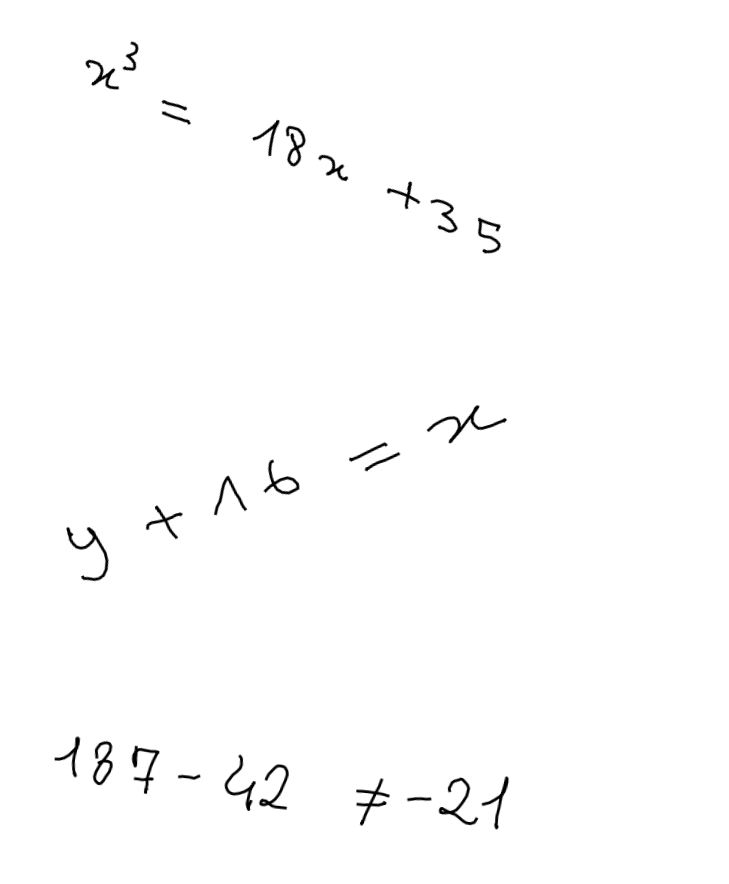 x³ = 18x + 35
y + 16 = x
187 - 42 ≠ -21